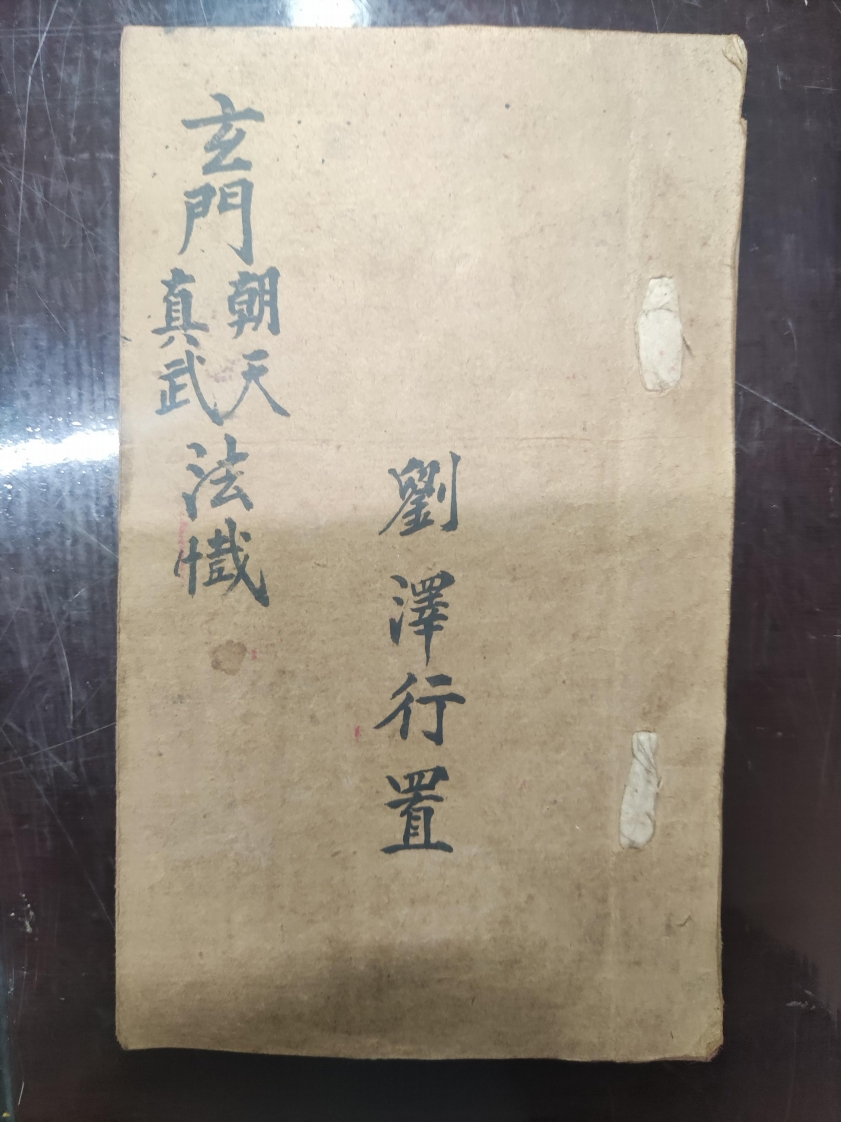 玄門朝天真武法懺
劉澤行置